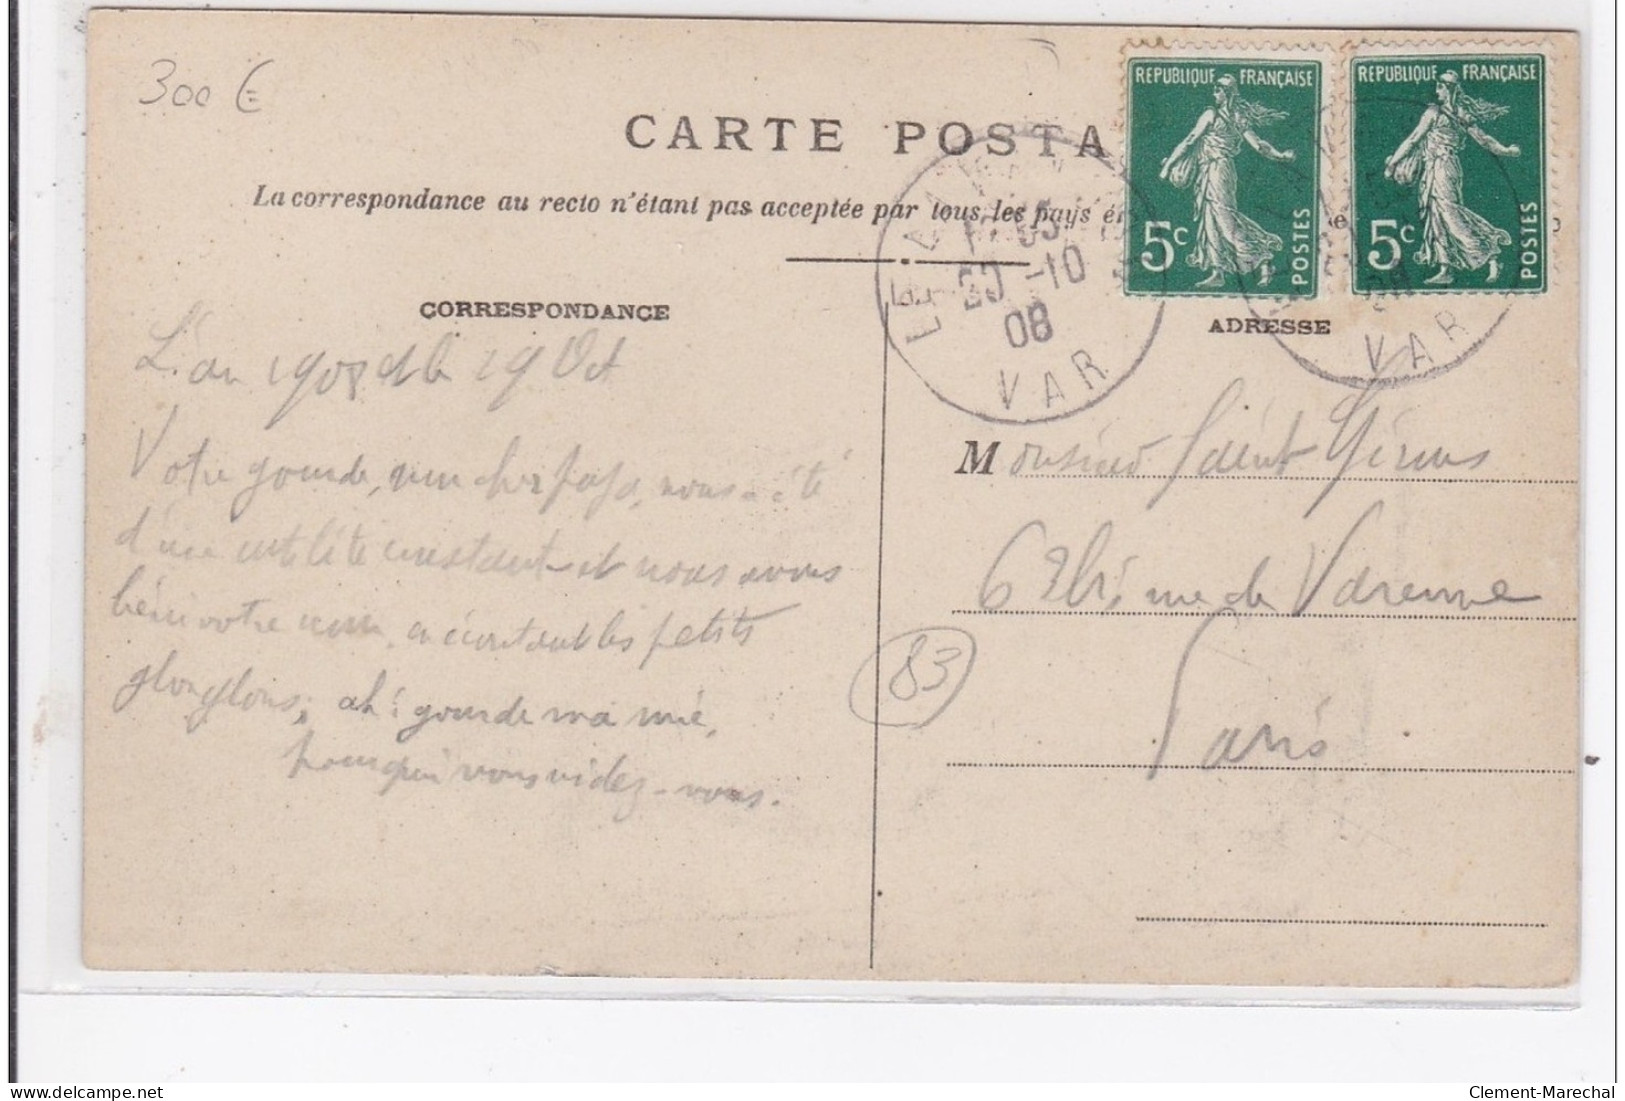 300 €
CARTE POSTA
La correspondance au recto n'étant pas acceptée par tous les pays ét
REPUBLIQUE FRANÇAISE
5c
POSTES
REPUBLIQUE FRANÇAISE
5c
POSTES
20 -10
08
VAR
VAR
CORRESPONDANCE
ADRESSE
L'an 1908 et le 19 Oct
Votre gourde, mon cher papa, nous a été
d'une utilité constante et nous avons
béni votre nom en écoutant les petits
glouglous, ah! gourde ma mie,
pourquoi vous videz-vous.
Monsieur Saint Génus
62 bis, rue de Varenne
Paris
83
delcampe.net
Clement-Marechal